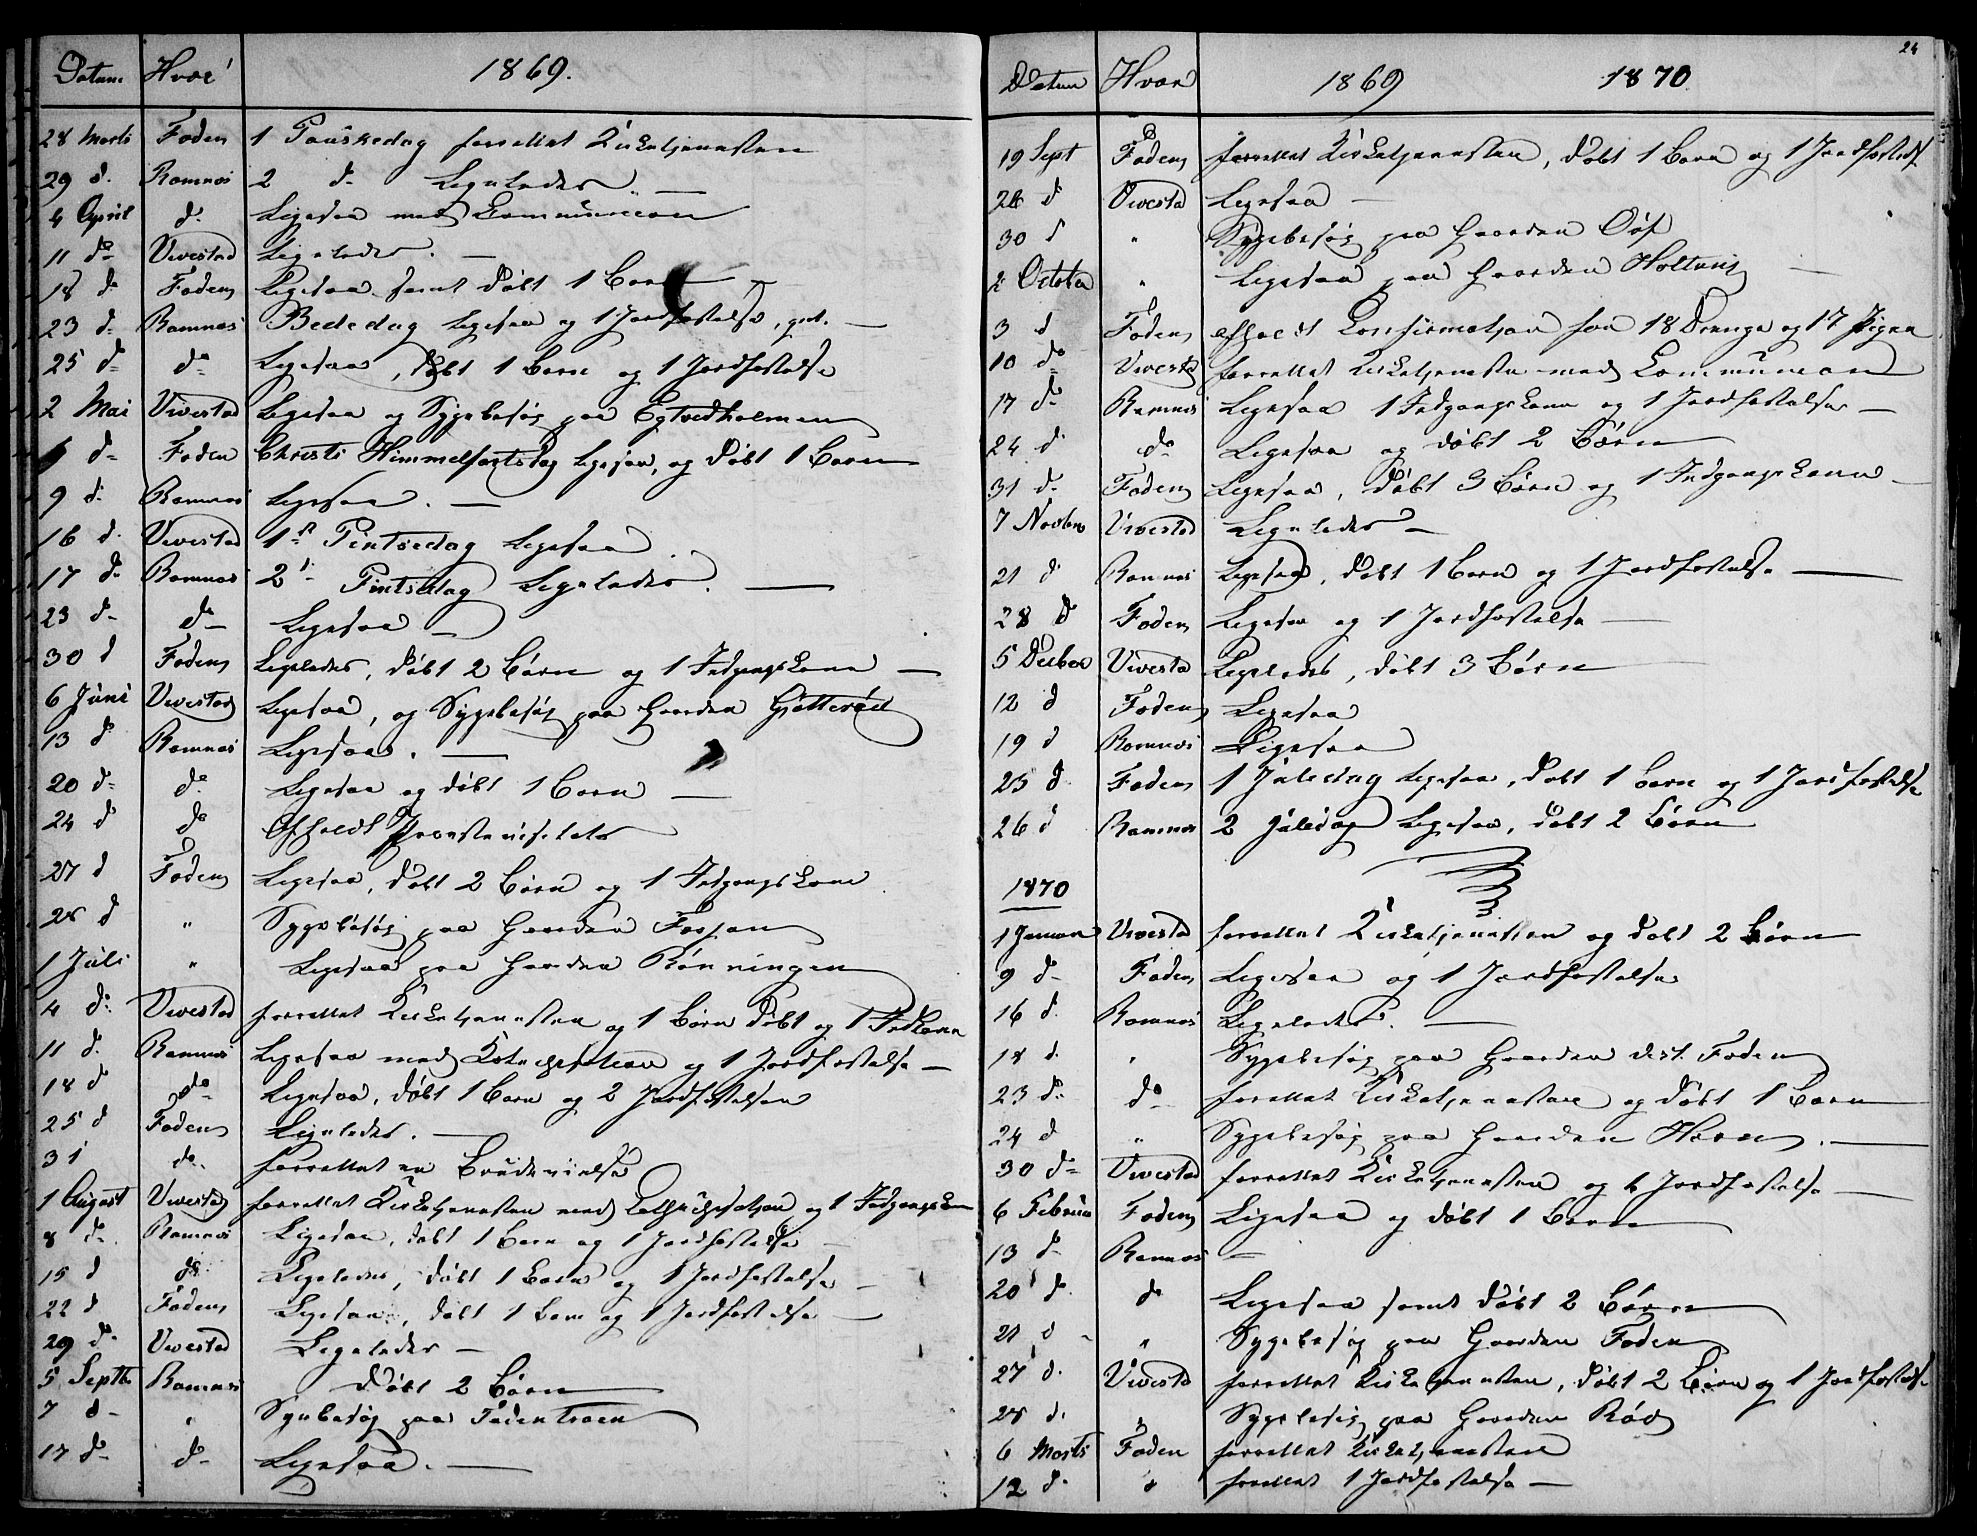 Datum Hvor 1869.
28 Marts Foden 1 Pauskedag forrettet Kirketjenesten
29 d. Ramnæs 2 d- Ligeledes. —
4 April d. Ligesaa med Communion
11 do Vivestad Ligeledes. —
18 do Foden Ligesaa samt døbt 1 Barn
23 d- Ramnæs Bededag ligesaa og 1 Jordfæstelse, —
25 d- do Ligesaa, døbt 1 Barn og 1 Jordfæstelse
2 Mai Vivestad Ligesaa og Sygebesøg paa Egtvedholmen
d- Foden Christi Himmelfartsdag ligesaa, og døbt 1 Barn
9 d. Ramnæs Ligesaa. —
16 d. Vivestad 1st Pintsedag Ligesaa
17 d- Ramnæs 2d Pintsedag Ligeledes. —
23 d- do Ligesaa —
30 d Foden Ligeledes, døbt 2 Børn og 1 Indgangskone —
6 Juni Vivestad Ligesaa, og Sygebesøg paa Gaarden Gjetterød
13 d Ramnæs Ligesaa. —
20 d- do Ligesaa og døbt 1 Barn —
24 d do Afholdt
27 d Foden Ligesaa, døbt 2 Børn og 1 Indgangskone
28 d " Sygebesøg paa Gaarden Fossan
1 Juli " Ligesaa paa Gaarden Rønningen
4 d. Vivestad forrettet Kirketjenesten og 1 Børn døbt og 1 Indkone
11 d. Ramnæs Ligesaa med Katechisation og 1 Jordfæstelse —
18 d do Ligesaa, døbt 1 Barn og 2 Jordfæstelser
25 d Foden Ligeledes. —
31 do forrettet en Brudevielse
1 August Vivestad forrettet Kirketjenesten med Kathechisation og 1 Indgangskone
8 d- Ramnæs Ligesaa, døbt 1 Barn og 1 Jordfæstelse —
15 d do Ligeledes, døbt 1 Barn og 1 Jordfæstelse —
22 d Foden Ligesaa, døbt 1 Barn og 1 Jordfæstelse —
29 d. Vivestad Ligeledes —
5 Septb Ramnæs Døbt 2 Børn
7 d- " Sygebesøg paa Fodentraen
d- d- Ligesaa. —
24
Datum Hvor 1869 1870
19 Sept Foden forrettet Kirketjenesten, døbt 1 Barn og 1 Jordfæstels.
26 d Vivestad Ligesaa —
30 d " Sygebesøg paa Gaarden
2 Octobr " Ligesaa paa Gaarden Holtung —
3 d Foden afholdt Confirmation for 18 Drenge og 17 Piger
10 do Vivestad forrettet Kirketjeneste med Communion
17 do Ramnæs Ligesaa 1 Indgangskone og 1 Jordfæstelse —
24 d do Ligesaa og døbt 2 Børn
31 d- Foden Ligesaa, døbt 3 Børn og 1 Indgangskone —
7 Novbr Vivestad Ligeledes —
21 d Ramnæs Ligesaa, døbt 1 Barn og 1 Jordfæstelse —
28 d Foden Ligesaa og 1 Jordfæstelse —
5 Decber Vivestad Ligeledes, døbt 3 Børn
12 d Foden Ligesaa
19 d Ramnæs Ligesaa
25 d Foden 1 Juledag ligesaa, døbt 1 barn og 1 Jordfæstelse
26 d Ramnæs 2 Juledag ligesaa, døbt 2 Børn
1870
1 Januar Vivestad forrettet Kirketjenesten og døbt 2 Børn
9 d- Foden Ligesaa og 1 Jordfæstelse
16 d. Ramnæs Ligeledes. —
18 d. " Sygebesøg paa Gaarden Foden
23 do do forrettet Kirketjenesten og døbt 1 Barn
24 d " Sygebesøg paa Gaarden Horn. —
30 d- Vivestad forrettet Kirketjenesten og 1 Jordfæstelse —
6 Februar Foden Ligesaa og døbt 1 Barn
13 d- Ramnæs —
20 d. do Ligesaa samt døbt 2 Børn
21 d " Sygebesøg paa Gaarden Foden
27 d. Vivestad forrettet Kirketjenesten, døbt 2 Børn og 1 Jordfæstelse
28 d. " Sygebesøg paa Gaarden Rød
6 Marts Foden forrettet Kirketjenesten
12 d. d forrettet 1 Jordfæstelse —